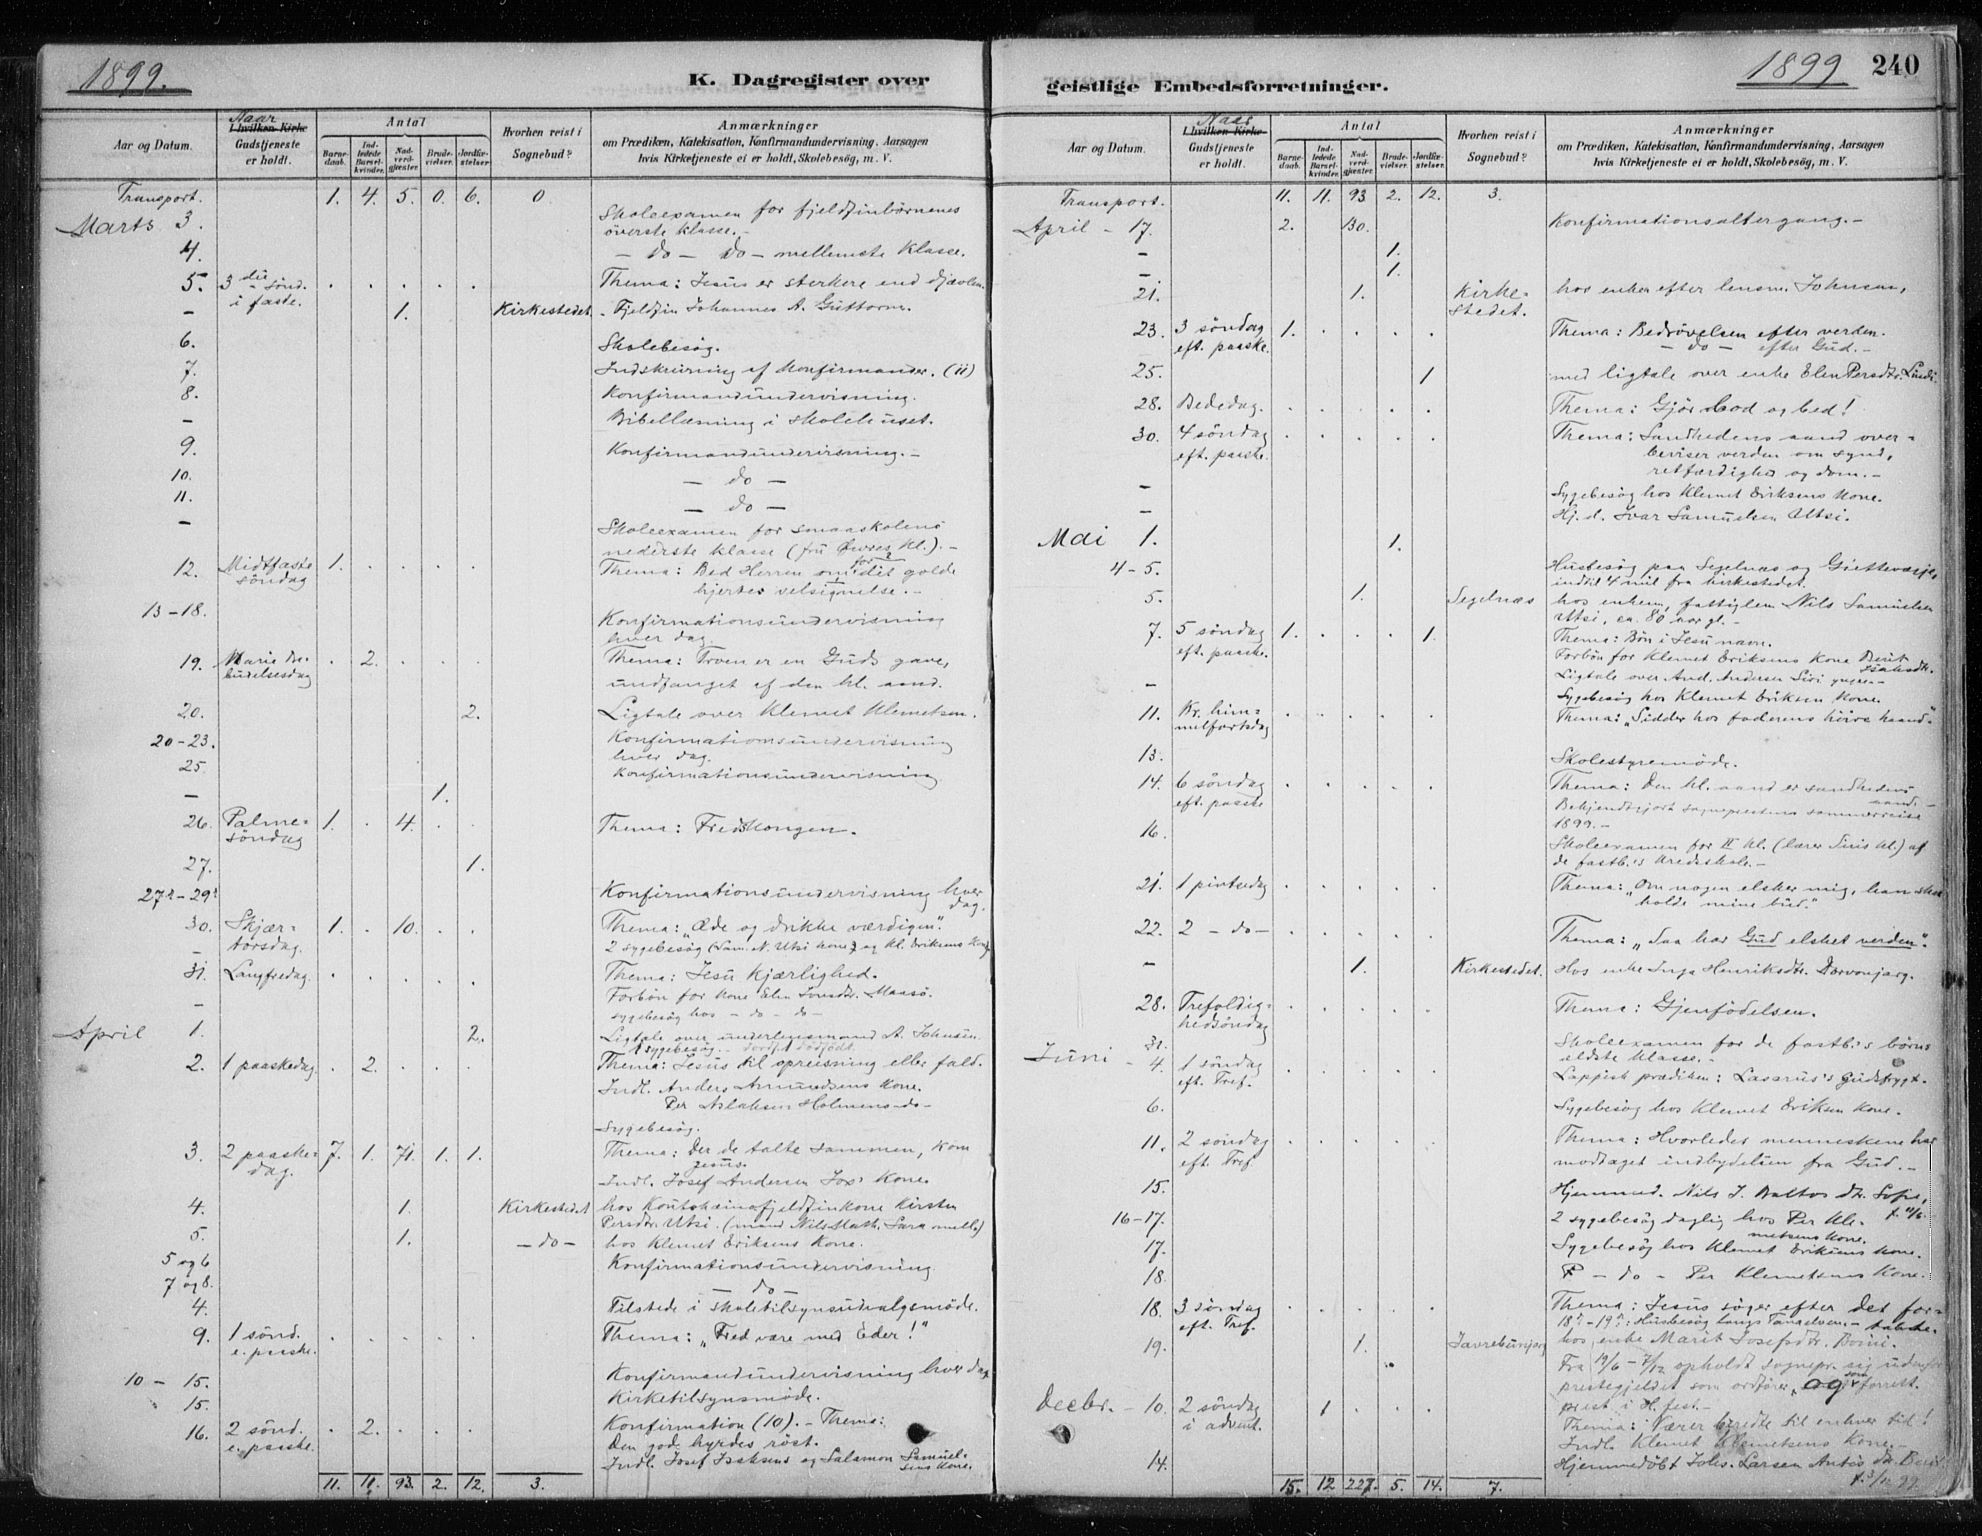 1899.
K. Dagregister over
Aar og Datum.
Naar
I hvilken Kirke
Gudstjeneste
er holdt.
Antal
Barne-
daab.
Ind-
ledede
Barsel-
kvinder.
Nad-
verd-
gjæster.
Brude-
vielser.
Jordfæ-
stelser.
Hvorhen reist i
Sognebud?
Anmærkninger
om Prædiken, Katekisation, Konfirmandundervisning, Aarsagen
hvis Kirketjeneste ei er holdt, Skolebesøg, m. V.
Transport. 1. 4. 5. 0. 6. 0
Marts 3. Skoleexamen for fjeldfinbørnenes
øverste klasse.-
4. - do - do - mellemste klasse.
5. 3die sønd. i faste. Thema: Jesus er sterkere end djævlen.
- 1. Kirkestedet. Fjeldfin Johannes A. Guttorm.
6. Skolebesøg.
7. Indskrivning af Konfirmander. (11)
8. Konfirmandundervisning.
- Bibellæsning i skolehuset.
9. Konfirmandundervisning.-
10. - do -
11. - do -
- Skoleexamen for smaaskolens
nederste klasse
12. Midtfaste søndag 1. Thema: Bed Herren om for dit golde
hjertes velsignelse.-
13-18. Konfirmationsundervisning
hver dag.
19. Marie Be-
budelsesdag 2. Thema: Troen er en Guds gave,
undfanget af den hl. aand.
20. 2. Ligtale over Klemet Klemetsen.
20-23. Konfirmationsundervisning
hver dag.
25. Konfirmationsundervisning
- 1.
26. Palme-
søndag 1. . 4. Thema: Fredskongen.
27. 1.
27de-29de Konfirmationsundervisning hver
dag.
30. Skjær-
torsdag. 1. . 10. Thema: "Æde og drikke værdigen".
- 2 sygebesøg (Sam. N. Utsi kone og Kl. Eriksens Kone)
31. Langfredag. Thema: Jesu kjærlighed.
Forbøn for Kone Elen Maasø.
- sygebesøg hos - do - do -
April 1. 2. Ligtale over underlensmand A. Johnsen.
1 sygebesøg. dødfødt.
2. 1 paaskedag 2. Thema: Jesus til opreisning eller fald.
Indl. Anders Amundsens Kone.
Per Aslaksen Holmens -do-
Sygebesøg.
3. 2 paaske-
dag. 7. 1. 71. 1. 1. Thema: Der de talte sammen, kom
Jesus.
Indl. Josef Andersen Kone.
4. 1. Kirkestedet hos Koutokeinofjeldfinkone Kirsten
Persdtr. Utsi. (mand Nils Math. Sara)
5. 1. - do - hos Klemet Eriksens Kone.
5 og 6 Konfirmationsundervisning.
7 og 8. - do -
4. Tilstede i skoletilsynsudvalgsmøde.
9. 1 sønd.
e. paaske. Thema: "Fred være med Eder!"
10 - 15. Konfirmandundervisning hver dag
15. Kirketilsynsmøde.
16. 2 sønd.
e. paaske. 2. Konfirmation (10). - Thema:
Den gode hyrdes røst.
Indl. Josef Isaksens og Salamon Samuel-
sens Kone.
11. 11. 93. 2. 12. 3.
geistlige Embedsforretninger.
1899 240
Aar og Datum.
Naar
I hvilken Kirke
Gudstjeneste
er holdt.
Antal
Barne-
daab.
Ind-
ledede
Barsel-
kvinder.
Nad-
verd-
gjæster.
Brude-
vielser.
Jordfæ-
stelser.
Hvorhen reist i
Sognebud?
Anmærkninger
om Prædiken, Katekisation, Konfirmandundervisning, Aarsagen
hvis Kirketjeneste ei er holdt, Skolebesøg, m. V.
Transport. 11. 11. 93 2. 12. 3.
April - 17. 2. 130. Konfirmationsaltergang.-
- 1.
- 1.
21. 1. Kirke-
stedet. hos enken efter lensm. Johnsen,
23. 3 søndag
eft. paaske. 1. Thema: Bedrøvelsen efter verden.
- do - efter Gud.-
25. 1 med ligtale over enke Elen Persdtr.
28. Bededag. Thema: Gjør bod og bed!
30. 4 søndag
eft. paaske. Thema: Sandhedens aand over-
beviser verden om synd,
retfærdighed og dom.-
- Sygebesøg hos Klemet Eriksens Kone.
- Hj.d. Ivar Samuelsen Utsi.
Mai 1. 1.
4-5. Husbesøg paa Segelnæs og
indtil 4 mil fra kirkestedet.
5. 1. Segelnæs hos enkem. fattiglem Nils Samuelsen
Utsi, ca. 80 aar gl.-
7. 5 søndag
eft. paaske. 1. 1. Thema: Bøn i Jesu navn.
Forbøn for Klemet Eriksens Kone Berit
Isaksdtr.
Ligtale over And. Andersen Siri yngre.-
- Sygebesøg hos Klemet Eriksen Kone.
11. Kr. him-
melfartsdag Thema: "Sidder hos faderens høire haand."
13. Skolestyremøde.
14. 6 søndag
eft. paaske Thema: Den hl. aand er sandhedens
aand.-
Bekjendtgjort sogneprestens sommerreise
1899.-
16. Skoleexamen for II Kl. (lærer Kl.) af
de fastb.'s kredsskole.-
21. 1 pintsedag Thema: "Om nogen elsker mig, han skal
holde mine bud."
22. 2 - do - Thema: "Saa har Gud elsket verden".
- 1. Kirkestedet. Hos enke Inga Henriksdtr.
28. Trefoldig-
hedsøndag Thema: Gjenfødelsen.
31. Skoleexamen for de fastb.'s børns
eldste klasse.-
Juni - 4. 1 søndag
eft. Tref. Lappisk prædiken: Lasarus's Gudsfrygt.
6. Sygebesøg hos Klemet Eriksen Kone.
11. 2 søndag
eft. Tref. Thema: Hvorledes menneskene har
modtaget indbydelsen fra Gud.-
15. Hjemmed. Nils J. Baltos dtr. Sofie,
16-17. 2 sygebesøg daglig hos Per Kle-
metsens Kone.
17. Sygebesøg hos Klemet Eriksens Kone.
18. - do - Per Klemetsens Kone.
18. 3 søndag
eft. Tref. Thema: Jesus søger efter det for-
tabte.
18de-19de: Husbesøg langs Tanaelven.-
19. 1. hos enke Marit Josefsdtr.
Fra 19/6 - 7/12 opholdt sognepr. sig udenfor
prestegjeldet som ordfører og som forrett.
prest i H.fest.-
Decbr. - 10. 2 søndag
i advent. 1 Thema: Værer beredte til enhver tid!
Indl. Klemet Klemetsens Kone.-
14. Hjemmedøbt Johs. Larsen Antis dtr. Berit
f. 3/12 99.
15. 12 227. 5. 14. 7.